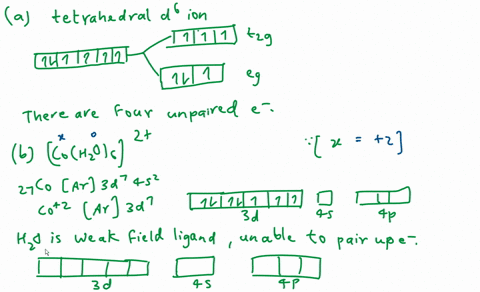 (a) tetrahedral d⁶ ion
1 1 1 t2g
1⇂ 1 1 1 1
1⇂ 1 eg
There are four unpaired e⁻.
(b) [Co(H2O)6]²⁺ x o ∵ [ x = +2 ]
27Co [Ar] 3d⁷ 4s²
Co⁺² [Ar] 3d⁷
1⇂ 1⇂ 1 1 1
3d 4s 4p
H2O is weak field ligand, unable to pair up e⁻.
3d 4s 4p